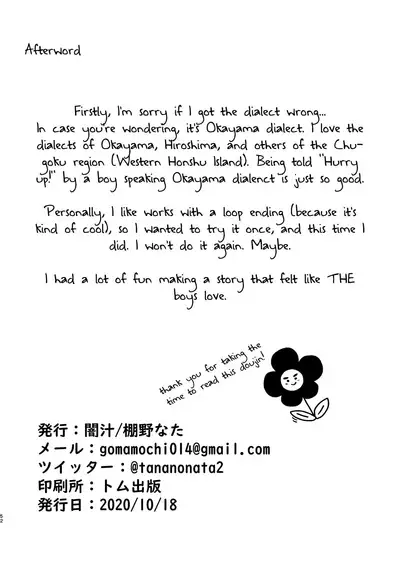 Afterword
Firstly, I'm sorry if I got the dialect wrong...
In case you're wondering, it's Okayama dialect. I love the
dialects of Okayama, Hiroshima, and others of the Chu-
goku region (Western Honshu Island). Being told "Hurry
up!" by a boy speaking Okayama dialenct is just so good.
Personally, I like works with a loop ending (because it's
kind of cool), so I wanted to try it once, and this time I
did. I won't do it again. Maybe.
I had a lot of fun making a story that felt like THE
boys love.
thank you for taking the
time to read this doujin!
発行：闇汁/棚野なた
メール：gomamochi014@gmail.com
ツイッター：@tananonata2
印刷所：トム出版
発行日：2020/10/18